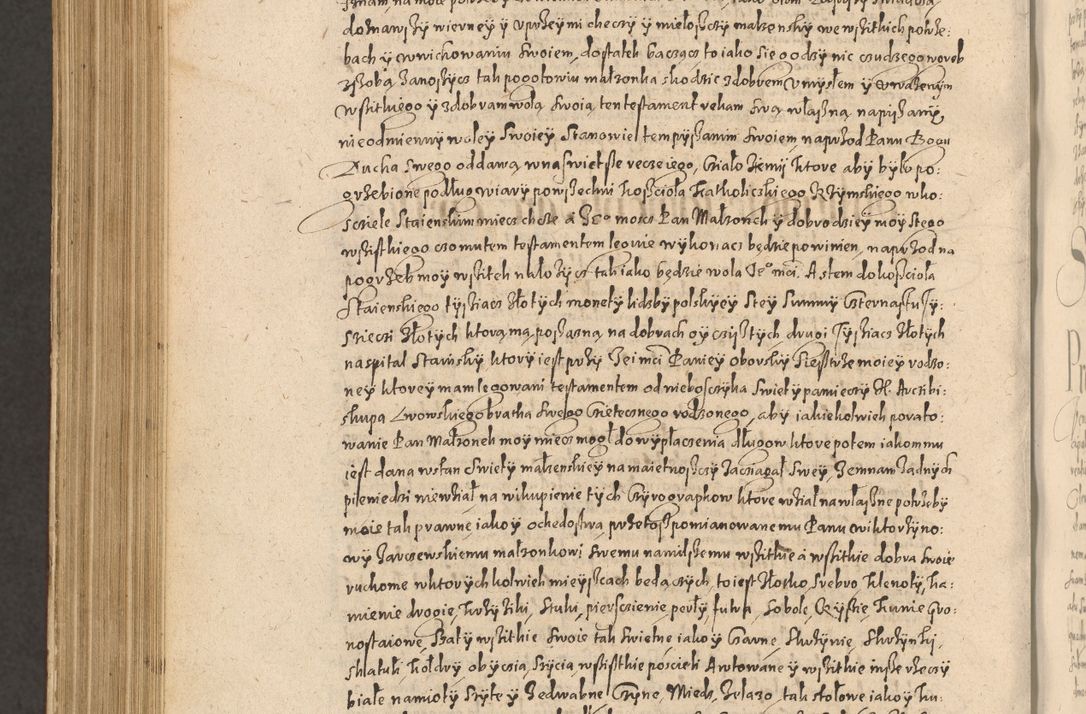 doznawszy wierney y uprzeymi checzy y miełosczy małzensky we wszitkich potrze:
bach y w wichowaniu swoiem, dostatek baczącz to iako sie godzy nic czudzego worob
zszobą zanoszycz tak pogotowiu małzonka skodzic z dobrem umysłem y uwazenym
wszitkiego y z dobram wolą swoią ten testament reką swą własną napiszany,
nieodmienny woley swoiey stanowie tem pyszanim swoiem naprzod Panu Bogu
Ducha swego oddawą w naswietsse recze iego, Ciało ziemi ktore aby było po:
grzebione podług wiary powszechni kosciola katholiczkiego Rzymskiego w ko:
sciele Staienskim miecz chcze a Ie° moscz Pan Małzonek y dobrodziey moy s tego
wszistkiego czomu tem testamentem leguie wykonacz będzie powinien, naprzod na
pogrzeb moy wszitek nałozycz tak iako będzie wola Ie° mci. A stem do kosciola
Staienskiego tysziacz złotych monety lidzby polskyey stey summy czternastu ty:
szieczi złotych ktorą mą poszasną na dobrach oyczistych drugi tysziacz złotych
na szpital Stainsky ktory iest przy Iei mci Paniey oborsky siesstrze moiey rodzo:
ney ktorey mam legowani testamentem od nieboszczyka swięty pamieczy X. Archbi:
skupa Lwowskiego bratha swego Cietecznego rodzonego, aby iakiekolwiek porato:
wanie Pan Małzonek moy miecz mogł do wypłaczenia długow ktore potem iako mmu
iest dana w stan swiety małzenskiey na maietnosczy zacziągał swey, zemnam zadnych
pieniedzi nie wział na wikupienie tych Cyrographow ktore wział na własne potrzeby
moie tak prawne iako y ochedostwa przetosz pomianowanemu Panu Wiktorzyno:
wy Jarczewskiemu małzonkowi swemu namilszemu wszitkie a wszitkie dobra swoie
ruchome w ktorych kolwiek mieyszcach bedączych, to iest złotho srebro klenoty, ka:
mienie drogie, krzyziki, sztuki, pierscienie perły, futra, sobole Rysie kunie gro:
nostaiowe, szaty wszitkie swoie tak swietne iako y czarne, skrzynie, skrzynki,
szkatuki kołdry obyczia, szycia wszistkie pościeli Awtowane y wszitkie insze rzeczy
białe namioty szyte y jedwabne Cyne, Miedz, zelazo, tak stołowe iako y ku: